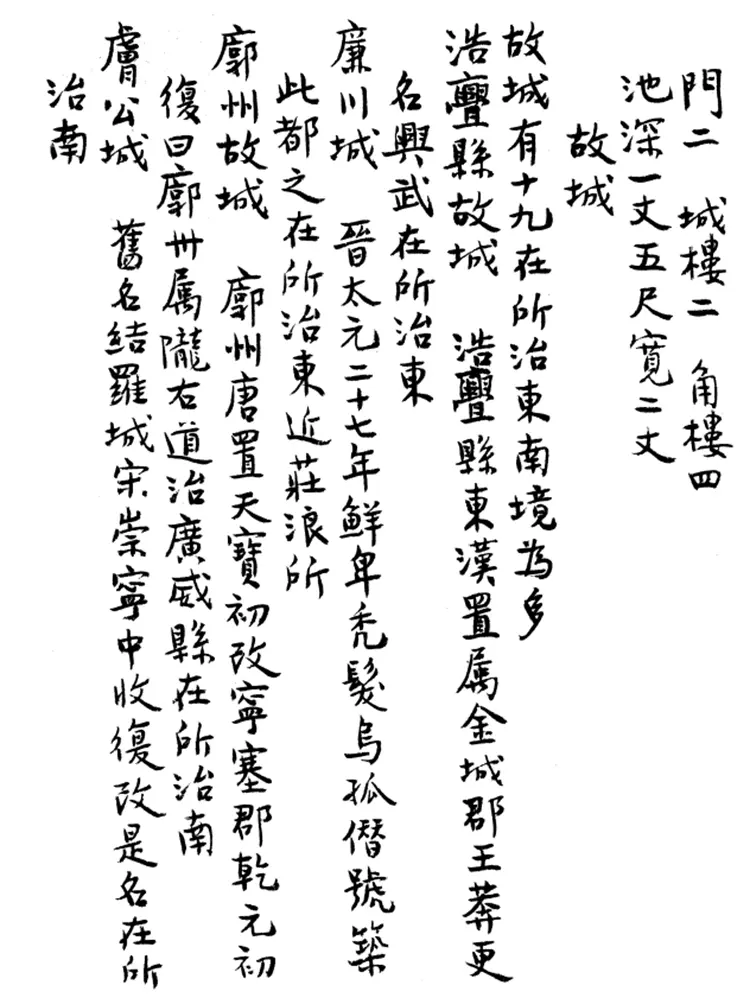 門二 城樓二 角樓四
池深一丈五尺寬二丈
故城
故城有十九在所治東南境為多
浩亹縣故城 浩亹縣東漢置属金城郡王莽更
名興武在所治東
廉川城 晉太元二十七年鮮卑禿髮烏孤僭號築
此都之在所治東近莊浪所
廓州故城 廓州唐置天寶初改寧塞郡乾元初
復曰廓州属隴右道治廣威縣在所治南
膚公城 舊名結羅城宋崇寧中收復改是名在所
治南